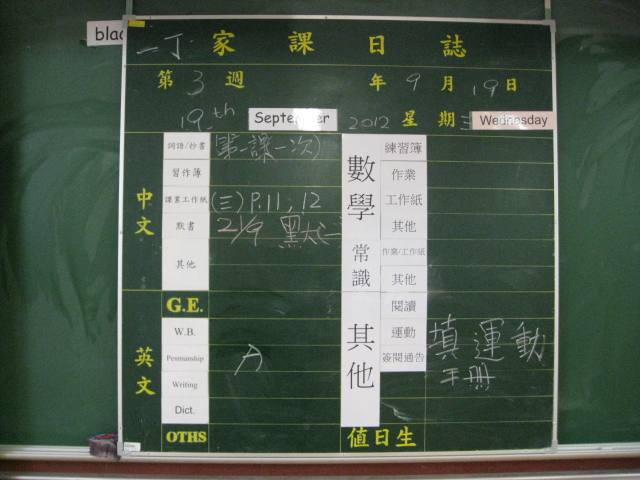 blac
一丁 家課日誌
第 3 週 年 9 月 19 日
19th September 2012 星期三 Wednesday
中文
詞語/抄書 第一課一次)
習作簿
課業工作紙 (三) P.11, 12
默書 21/9 默(一
其他
英文
G.E.
W.B.
Penmanship A
Writing
Dict.
OTHS
數學
練習簿
作業
工作紙
其他
常識
作業/工作紙
其他
其他
閱讀
運動 填運動
簽閱通告 手冊
值日生